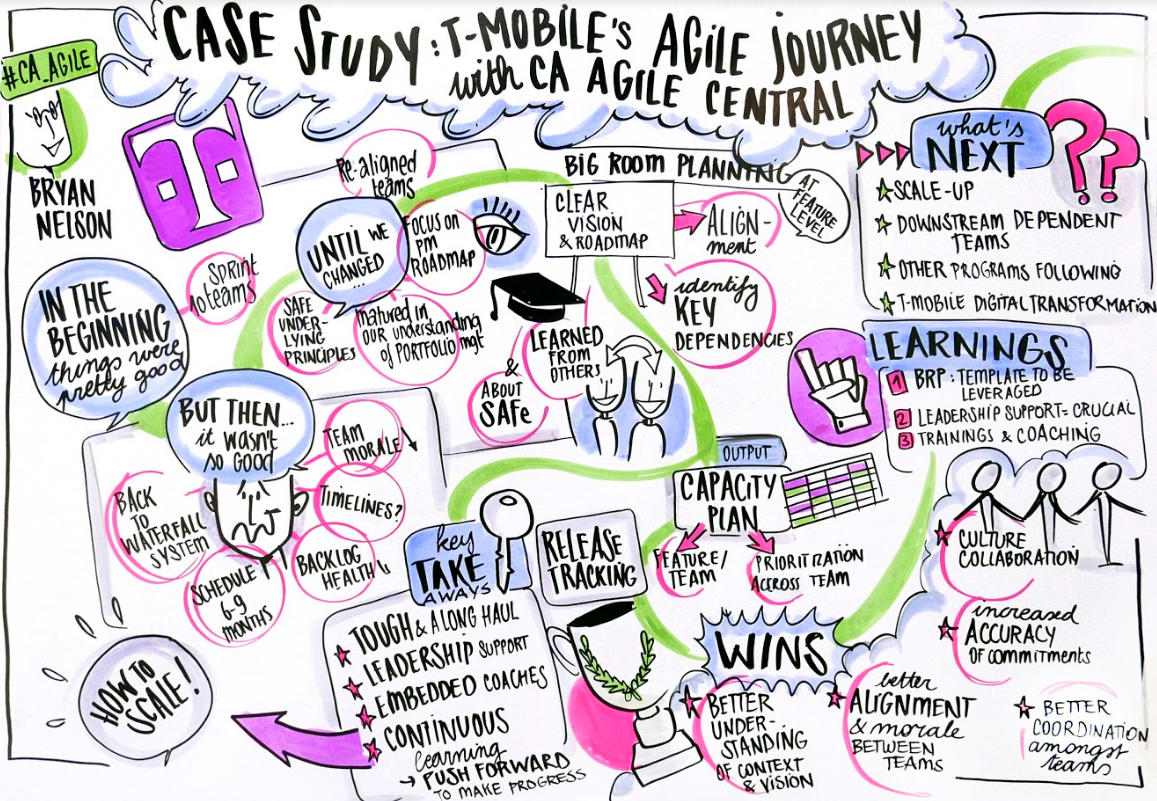 CASE STUDY: T-MOBILE'S AGILE JOURNEY
with CA AGILE CENTRAL
#CA_AGILE
BRYAN
NELSON
T
IN THE
BEGINNING
things were
pretty good
10 SPRINT
teams
BUT THEN...
it wasn't
SO GOOD
TEAM
MORALE
TIMELINES?
BACKLOG
HEALTH
SCHEDULE
6-9
MONTHS
BACK
TO
WATERFALL
SYSTEM
UNTIL WE
CHANGED
...
Re-aligned
teams
FOCUS ON
PM
ROADMAP
SAFE
UNDER-
LYING
PRINCIPLES
matured in
OUR understanding
OF PORTFOLIO mgt
LEARNED
FROM
OTHERS
&
ABOUT
SAFe
BIG ROOM PLANNING
AT
FEATURE
LEVEL
CLEAR
VISION
& ROADMAP
ALIGN-
ment
identify
KEY
DEPENDENCIES
OUTPUT
CAPACITY
PLAN
FEATURE/
TEAM
PRIORITIZATION
ACROSS TEAM
RELEASE
TRACKING
WINS
BETTER
UNDER-
STANDING
OF CONTEXT
& VISION
better
ALIGNMENT
& morale
BETWEEN
TEAMS
CULTURE
COLLABORATION
increased
ACCURACY
OF commitments
BETTER
COORDINATION
amongst
teams
LEARNINGS
1 BRP: TEMPLATE TO BE
LEVERAGED
2 LEADERSHIP SUPPORT- CRUCIAL
3 TRAININGS & COACHING
what's
NEXT
??
SCALE-UP
DOWNSTREAM DEPENDENT
TEAMS
OTHER PROGRAMS FOLLOWING
T-MOBILE DIGITAL TRANSFORMATION
key
TAKE
AWAYS
TOUGH & A LONG HAUL
LEADERSHIP SUPPORT
EMBEDDED COACHES
CONTINUOUS
learning
→ PUSH FORWARD
TO MAKE PROGRESS
HOW TO
SCALE!